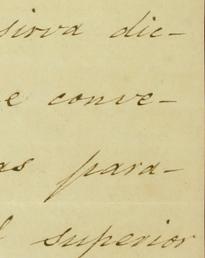 sirva dic-
e conve-
as para-
l superior